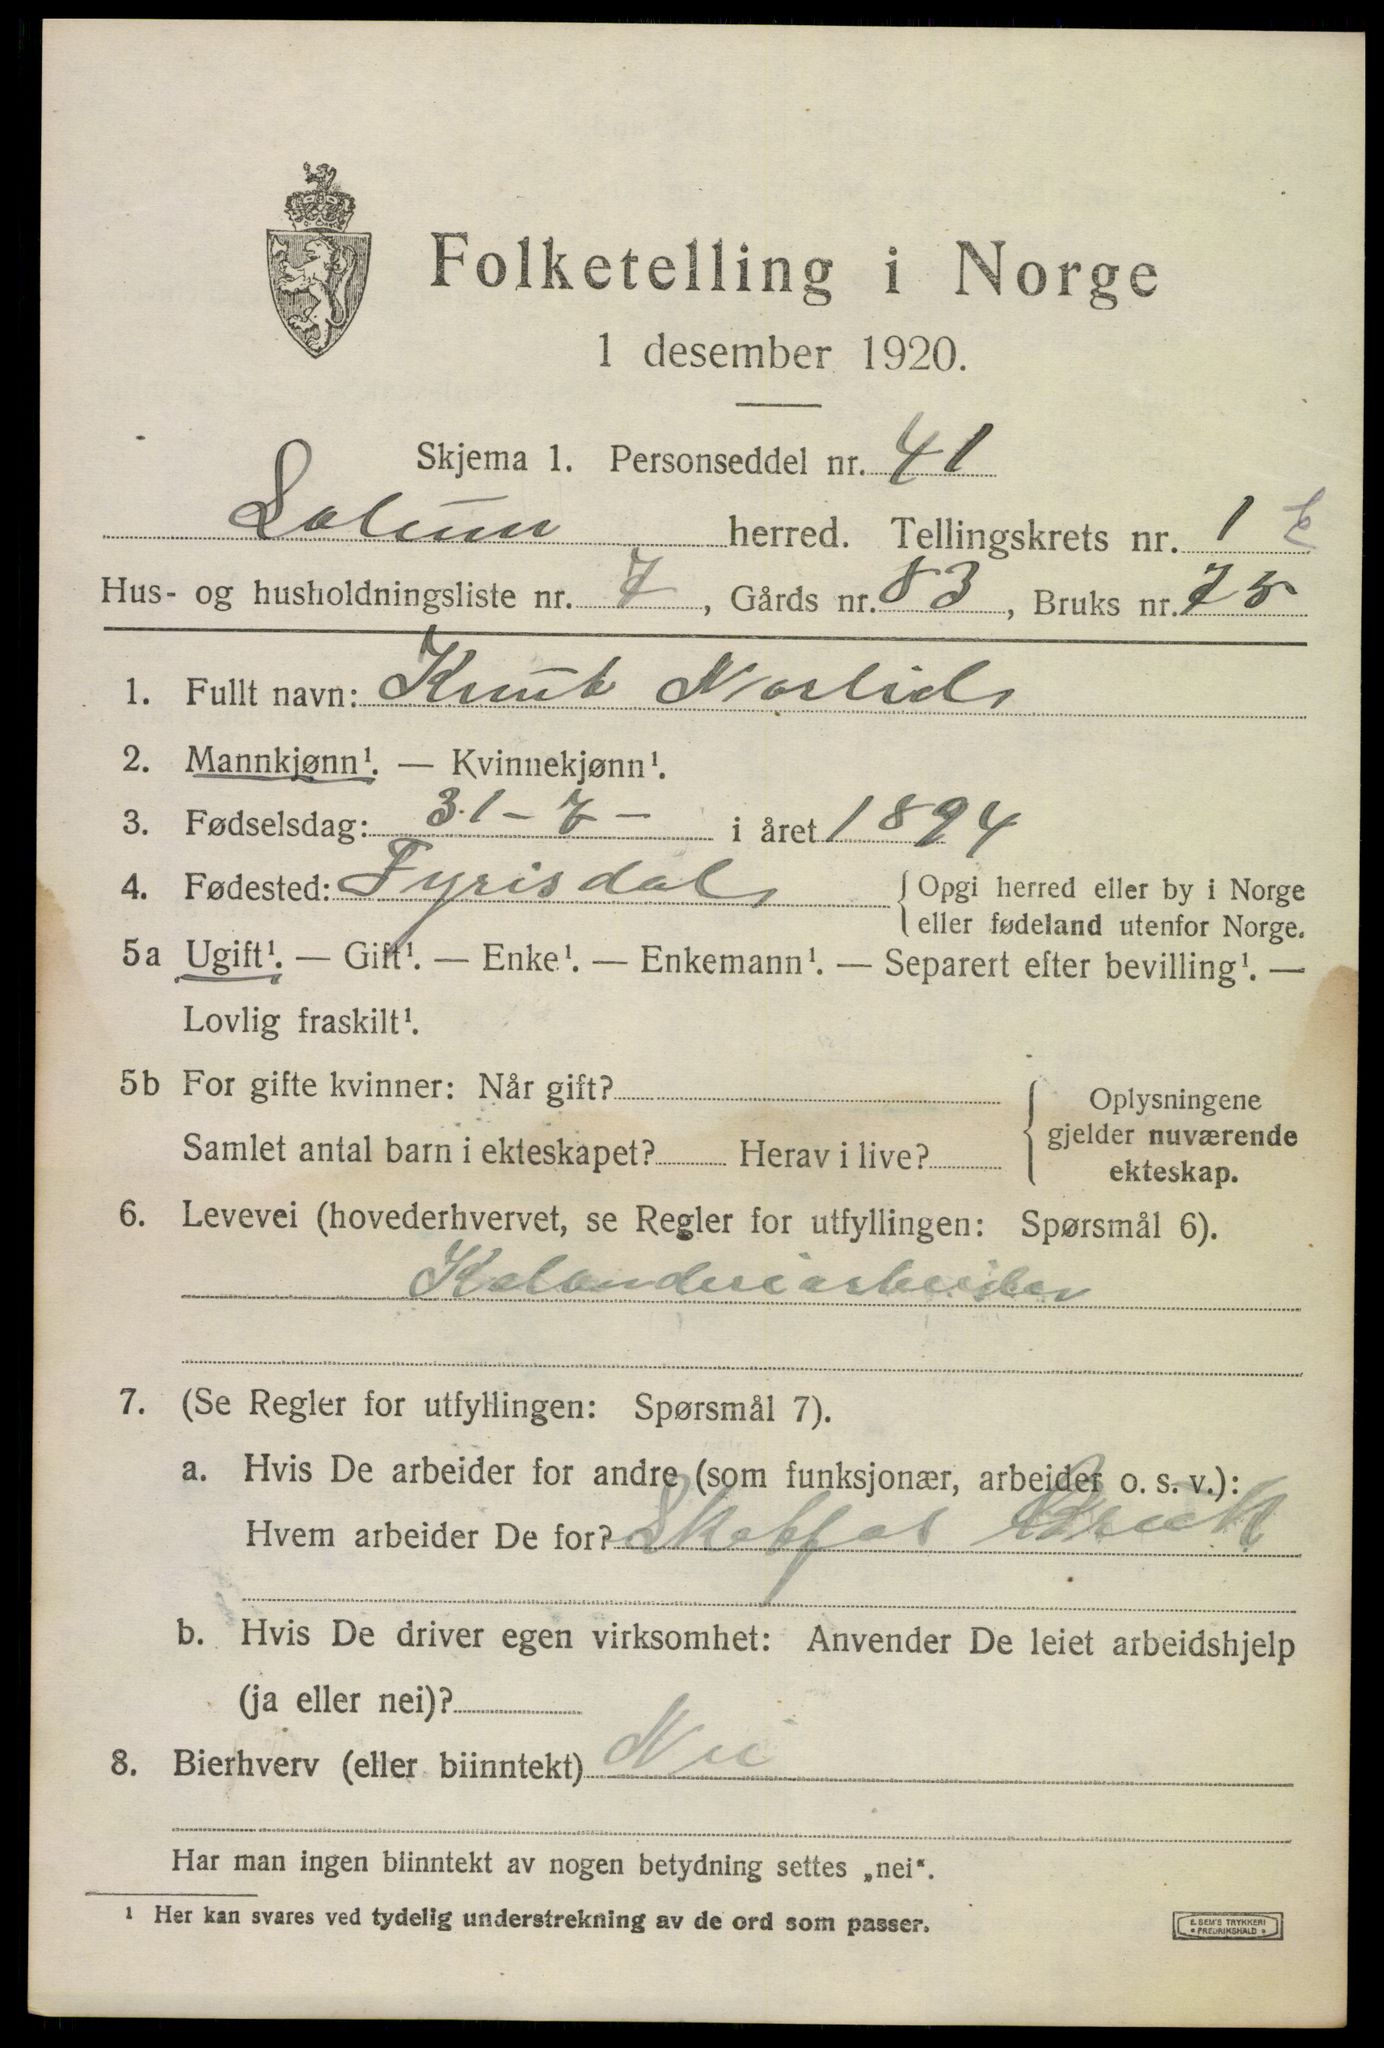 Folketelling i Norge
1 desember 1920.
Skjema 1. Personseddel nr. 41
Solum herred. Tellingskrets nr. 1 E
Hus- og husholdningsliste nr. 7, Gårds nr. 83, Bruks nr. 75
1. Fullt navn: Knut Norlid
2. Mannkjønn¹. — Kvinnekjønn¹.
3. Fødselsdag: 31-7- i året 1894
4. Fødested: Fyrisdal {Opgi herred eller by i Norge
eller fødeland utenfor Norge.
5a Ugift¹. — Gift¹. — Enke¹. — Enkemann¹. — Separert efter bevilling¹. —
Lovlig fraskilt¹.
5b For gifte kvinner: Når gift? Oplysningene
gjelder nuværende
Samlet antal barn i ekteskapet? Herav i live? ekteskap.
6. Levevei (hovederhvervet, se Regler for utfyllingen: Spørsmål 6).
Kalanderiarbeider
7. (Se Regler for utfyllingen: Spørsmål 7).
a. Hvis De arbeider for andre (som funksjonær, arbeider o. s. v.):
Hvem arbeider De for? Skotfos Bruk
b. Hvis De driver egen virksomhet: Anvender De leiet arbeidshjelp
(ja eller nei)?
8. Bierhverv (eller biinntekt) Nei
Har man ingen biinntekt av nogen betydning settes „nei“.
¹ Her kan svares ved tydelig understrekning av de ord som passer.
E. SEM'S TRYKKERI
• FREDRIKSHALD •